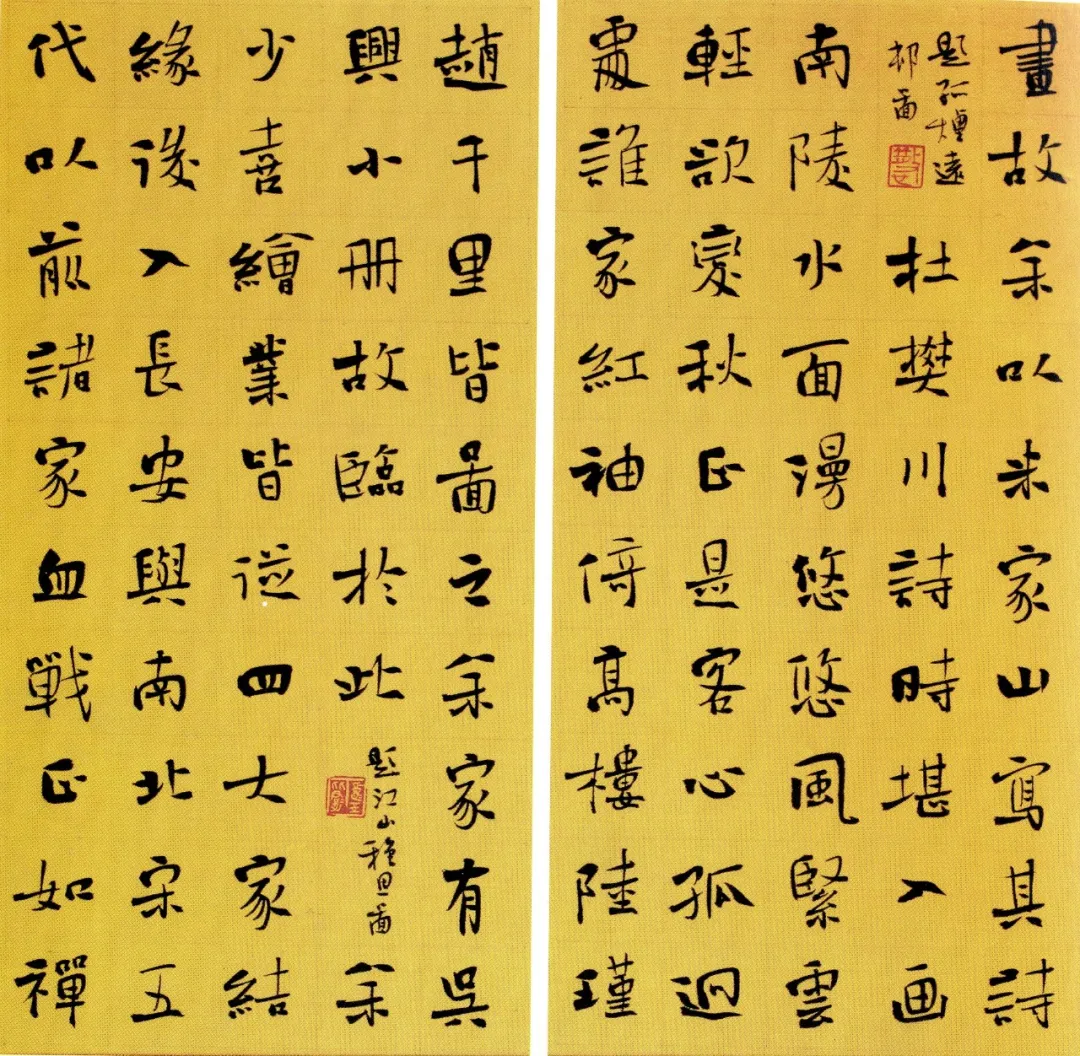 畫故余以米家山寫其詩
題孤煙遠
邨啚
杜樊川詩時堪入画
南陵水面漫悠悠風緊雲
輕欲變秋正是客心孤迥
處誰家紅袖倚高樓陸瑾
趙千里皆啚之余家有吳
興小冊故臨於此
題江山穐思啚
余
少喜繪業皆從四大家結
緣後入長安與南北宋五
代以前諸家血戰正如禪